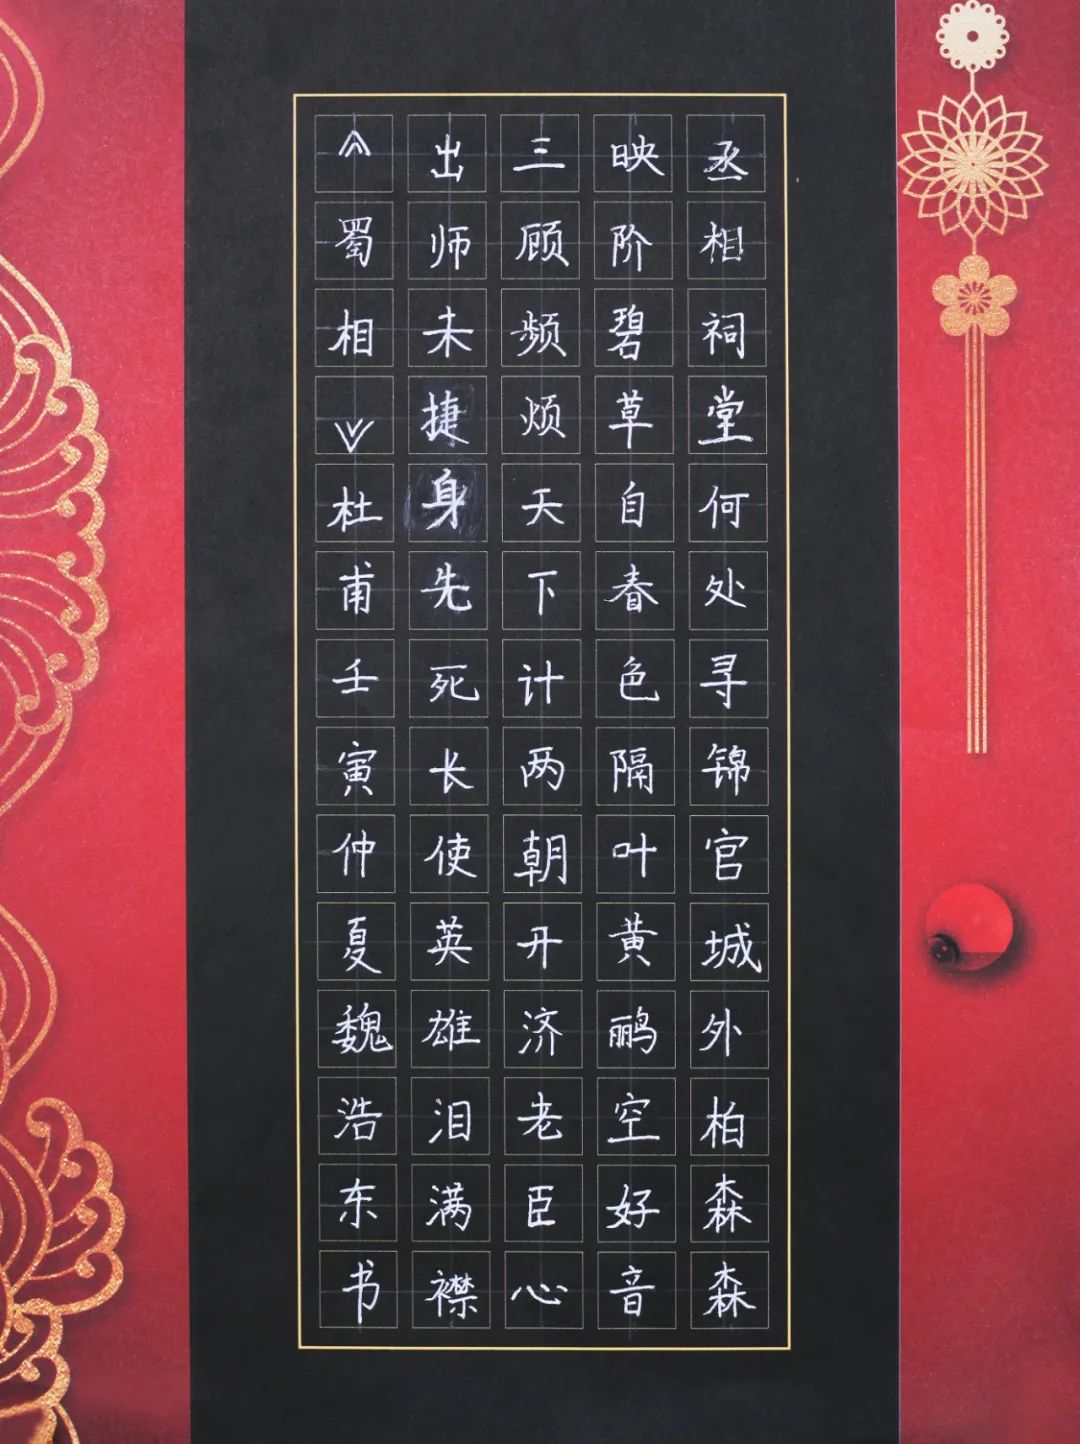 丞相祠堂何处寻锦官城外柏森森
映阶碧草自春色隔叶黄鹂空好音
三顾频烦天下计两朝开济老臣心
出师未捷身先死长使英雄泪满襟
《蜀相》杜甫壬寅仲夏魏浩东书